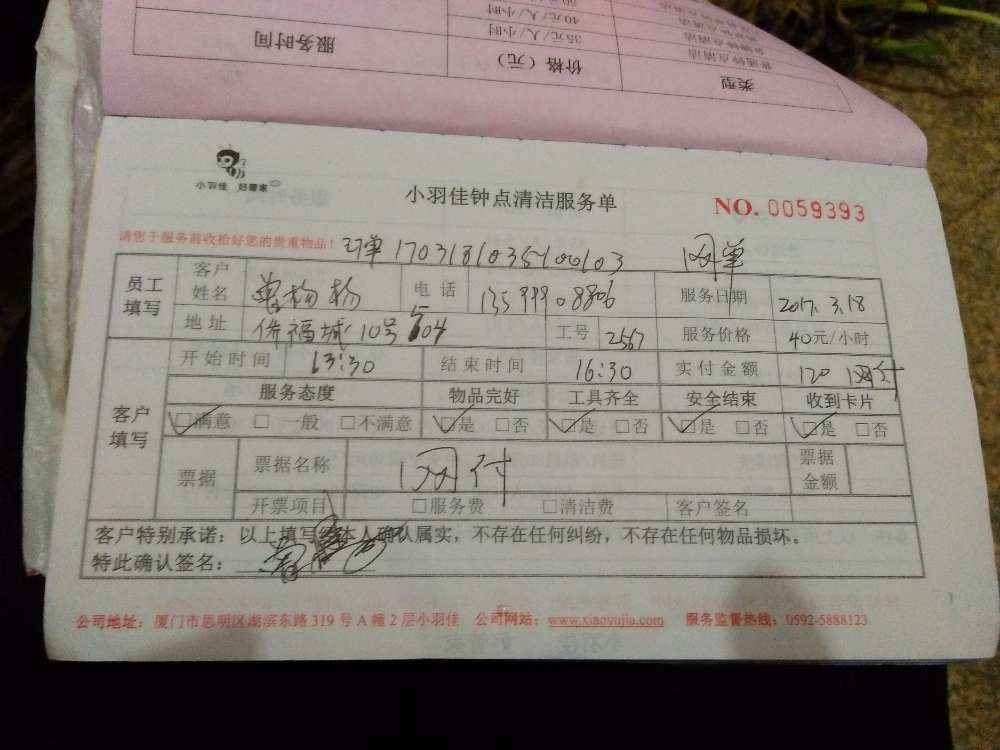 类型 价格（元） 服务时间
普通钟点清洁 35元/人/小时
40元/人/小时
小羽佳 好管家
小羽佳钟点清洁服务单 NO. 0059393
请您于服务前收拾好您的贵重物品！ 订单 1703181035100103 网单
员工填写 客户姓名 电话 服务日期 2017.3.18
地址 侨福城10号504 工号 2567 服务价格 40元/小时
客户填写 开始时间 13:30 结束时间 16:30 实付金额 120 网付
服务态度 物品完好 工具齐全 安全结束 收到卡片
☑满意 □ 一般 □不满意 ☑是 □否 ☑是 □否 ☑是 □否 ☑是 □否
票据 票据名称 网付 票据金额
开票项目 □服务费 □清洁费 客户签名
客户特别承诺：以上填写经本人确认属实，不存在任何纠纷，不存在任何物品损坏。
特此确认签名：
公司地址：厦门市思明区湖滨东路319号A幢2层小羽佳 公司网站：www.xiaoyujia.com 服务监督热线：0592-5888123